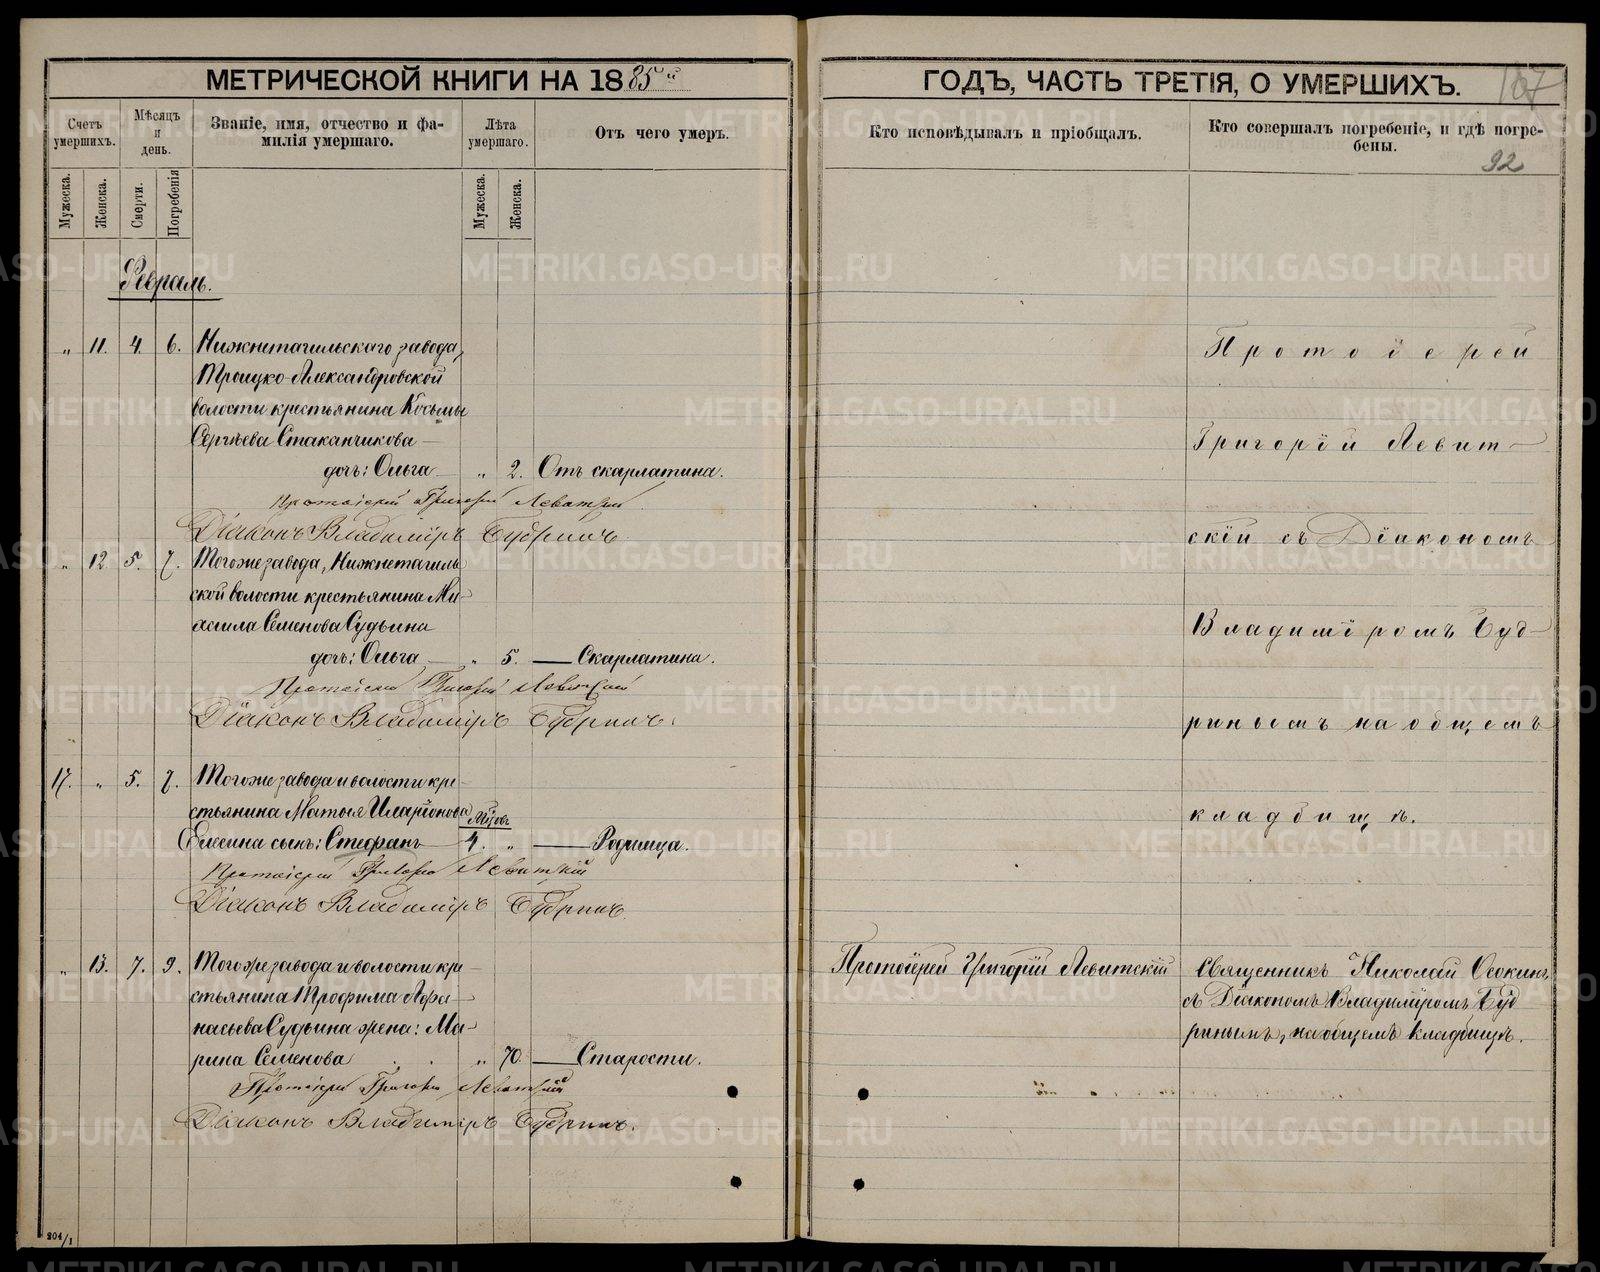 МЕТРИЧЕСКОЙ КНИГИ НА 1885й
ГОДЪ, ЧАСТЬ ТРЕТІЯ, О УМЕРШИХЪ.
167
92
Счетъ умершихъ.
Мѣсяцъ и день.
Званіе, имя, отчество и фамилія умершаго.
Лѣта умершаго.
Отъ чего умеръ.
Кто исповѣдывалъ и пріобщалъ.
Кто совершалъ погребеніе, и гдѣ погребены.
Мужеска.
Женска.
Смерти.
Погребенія
Мужеска.
Женска.
Февраль.
„ 11. 4. 6. Нижнетагильскаго завода,
Троицко-Александровской
волости крестьянина Косьмы
Сергѣева Стаканчикова —
дочь: Ольга „ 2. Отъ скарлатина.
Протоіерей Григорій Левитскій
Діаконъ Владиміръ Будринъ
„ 12 5. 7. Тогоже завода, Нижнетагиль
ской волости крестьянина Ми-
хаила Семенова Судьина
дочь: Ольга — „ 5. — Скарлатина.
Протоіерей Григорій Левитскій
Діаконъ Владиміръ Будринъ.
17. „ 5. 7. Тогоже завода и волости кре-
стьянина Матвѣя Иларіонова
Елесина сынъ: Стефанъ Мѣ. 4. „ — Родимца.
Протоіерей Григорій Левитскій
Діаконъ Владиміръ Будринъ.
„ 13. 7. 9. Тогоже завода и волости кре-
стьянина Трофима Афа-
насьева Судьина жена: Ма-
рина Семенова . . „ 70. — Старости.
Протоіерей Григорій Левитскій
Діаконъ Владиміръ Будринъ.
Протоіерей
Григорій Левит-
скій съ Діакономъ
Владиміромъ Буд-
ринымъ на общемъ
кладбищѣ.
Протоіерей Григорій Левитскій
Священникъ Николай Осокинъ
съ Діакономъ Владиміромъ Буд
ринымъ, на общемъ кладбищѣ.
204/1
METRIKI.GASO-URAL.RU